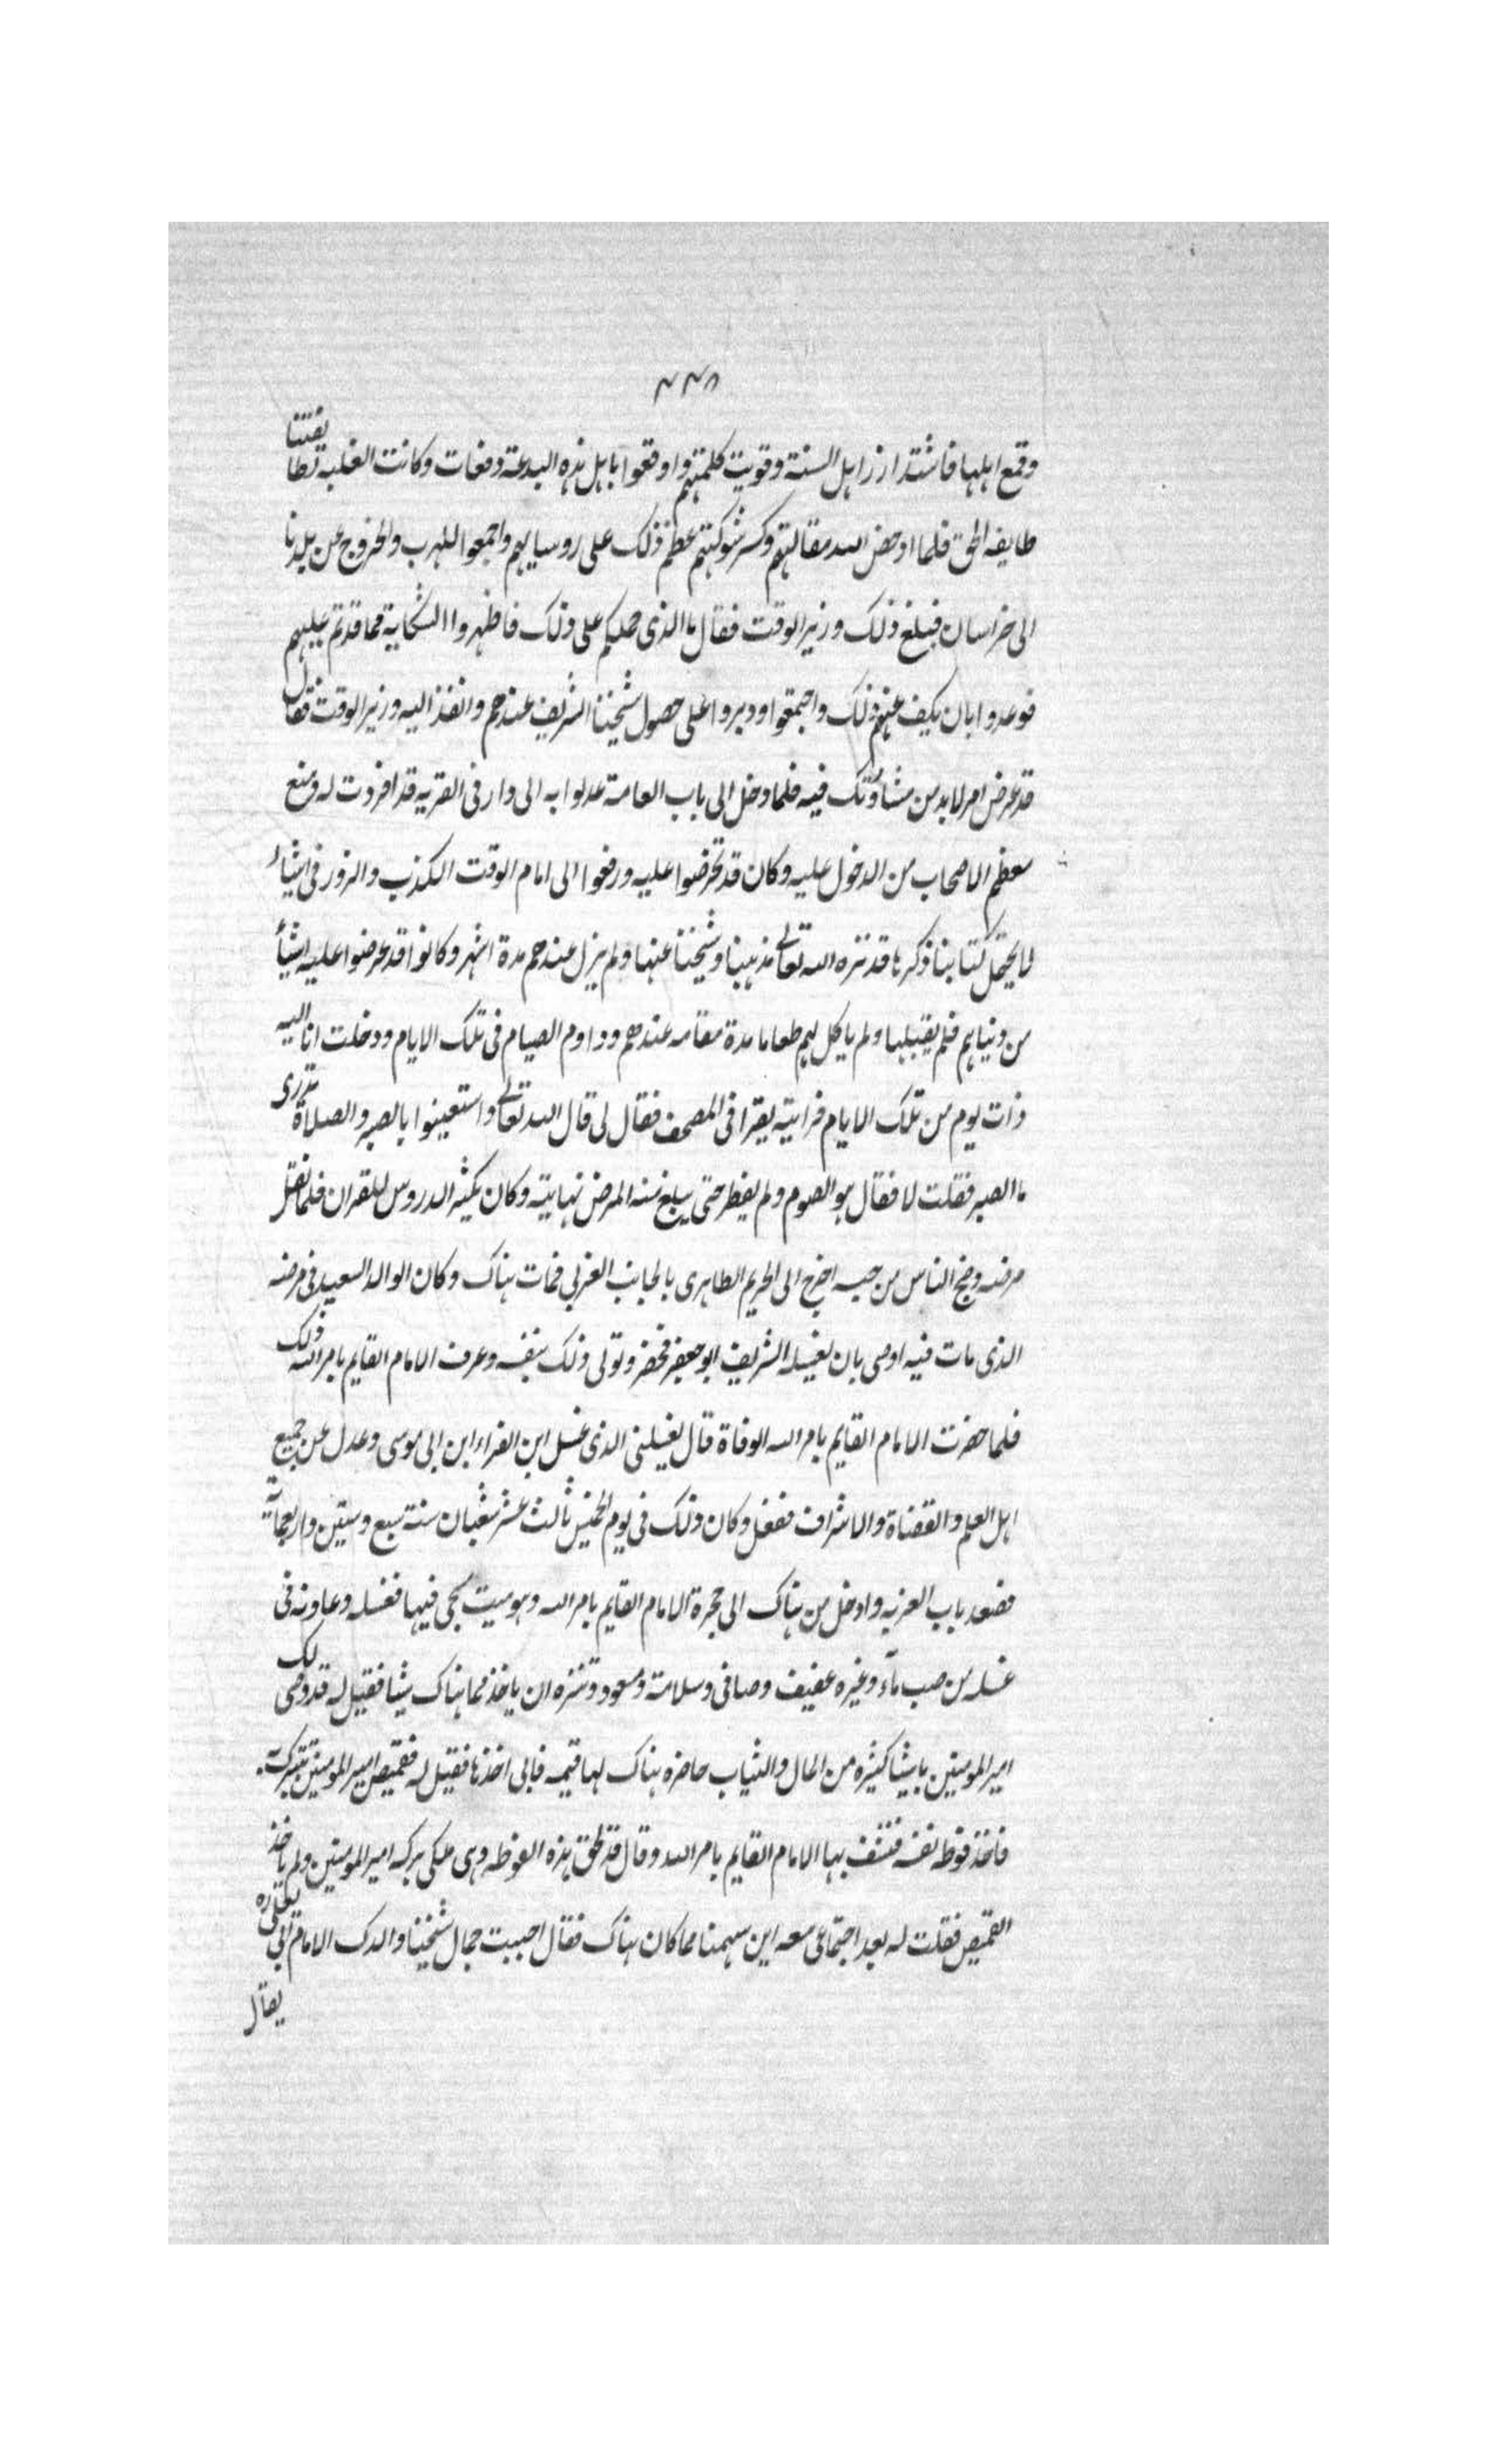 ٣٣٨
وقمع اهلها فاشتد ازر اهل السنة وقويت كلمتهم واوقعوا باهل هذه البدعة دفعات وكانت الغلبة لطايفتنا
طايفة الحق فلما ادحض الله مقالتهم وكسر شوكتهم عظم ذلك على روسايهم واجمعوا للهرب والخروج عن بلدنا
الى خراسان فبلغ ذلك وزير الوقت فقال ما الذي حملكم على ذلك فاظهروا الشكاية مما قدتم عليهم
فوعدوا بان يكف عنهم ذلك واجمعوا ودبروا على حصول شيخنا الشريف عندهم وانفذ اليه وزير الوقت فقال
قد عرض امر لابد من مشاورتك فيه فلما دخل الى باب العامة عدلوا به الى دار في القرية قد افردت له ومنع
معظم الاصحاب من الدخول عليه وكان قد تخرضوا عليه ورفعوا الى امام الوقت الكذب والزور في اشياء
لا يحتمل كتابنا ذكرها قد نزه الله تعالى مذهبنا وشيخنا عنها ولم يزل عندهم مدة اشهر وكانوا قد عرضوا عليه اشياء
من دنياهم فلم يقبلها ولم ياكل لهم طعاما مدة مقامه عندهم وداوم الصيام في تلك الايام ودخلت انا اليه
ذات يوم من تلك الايام فرايته يقرا في المصحف فقال لي قال الله تعالى واستعينوا بالصبر والصلاة تدرى
ما الصبر فقلت لا فقال هو الصوم ولم يفطر حتى يبلغ منه المرض نهايته وكان يكثر الدروس للقران فلما ثقل
مرضه وضج الناس من حبسه اخرج الى الحريم الطاهرى بالجانب الغربي فمات هناك وكان الوالد السعيد في مرضه
الذى مات فيه اوصى بان يغسله الشريف ابو جعفر فحضر وتولى ذلك بنفسه وعرف الامام القايم بامر الله ذلك
فلما حضرت الامام القايم بامر الله الوفاة قال يغسلني الذى غسل ابن الفراء ابن ابي موسى وعدل عن جميع
اهل العلم والقضاة والاشراف ففعل وكان ذلك في يوم الخميس ثالث عشر شعبان سنة سبع وستين واربعماية
فصعد باب الغربه وادخل من هناك الى حجرة الامام القايم بامر الله وهو ميت مسجى فيها فغسله وعاونه في
غسله من صب ماء وغيره عفيف وصافى وسلامة ومسعود وتنزه ان ياخذ مما هناك شيئا فقيل له قد وصى لك
امير المومنين باشيا كثيره من المال والثياب حاضره هناك لها قيمه فابى اخذها فقيل له فقميص امير المومنين تتبرك به
فاخذ فوطة نفسه فنشف بها الامام القايم بامر الله وقال قد لحق هذه الفوطه وهى ملكى بركه امير المومنين ولم ياخذ
القميص فقلت له بعد اجتماعى معه اين سهمنا مما كان هناك فقال احببت جمال شيخنا والدك الامام ابي يعلى
يقال